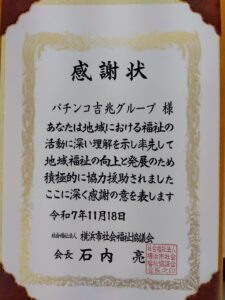 感謝状
パチンコ吉兆グループ 様
あなたは地域における福祉の
活動に深い理解を示し率先して
地域福祉の向上と発展のため
積極的に協力援助されました
ここに深く感謝の意を表します
令和7年11月18日
社会福祉法人 横浜市社会福祉協議会
会長 石内 亮